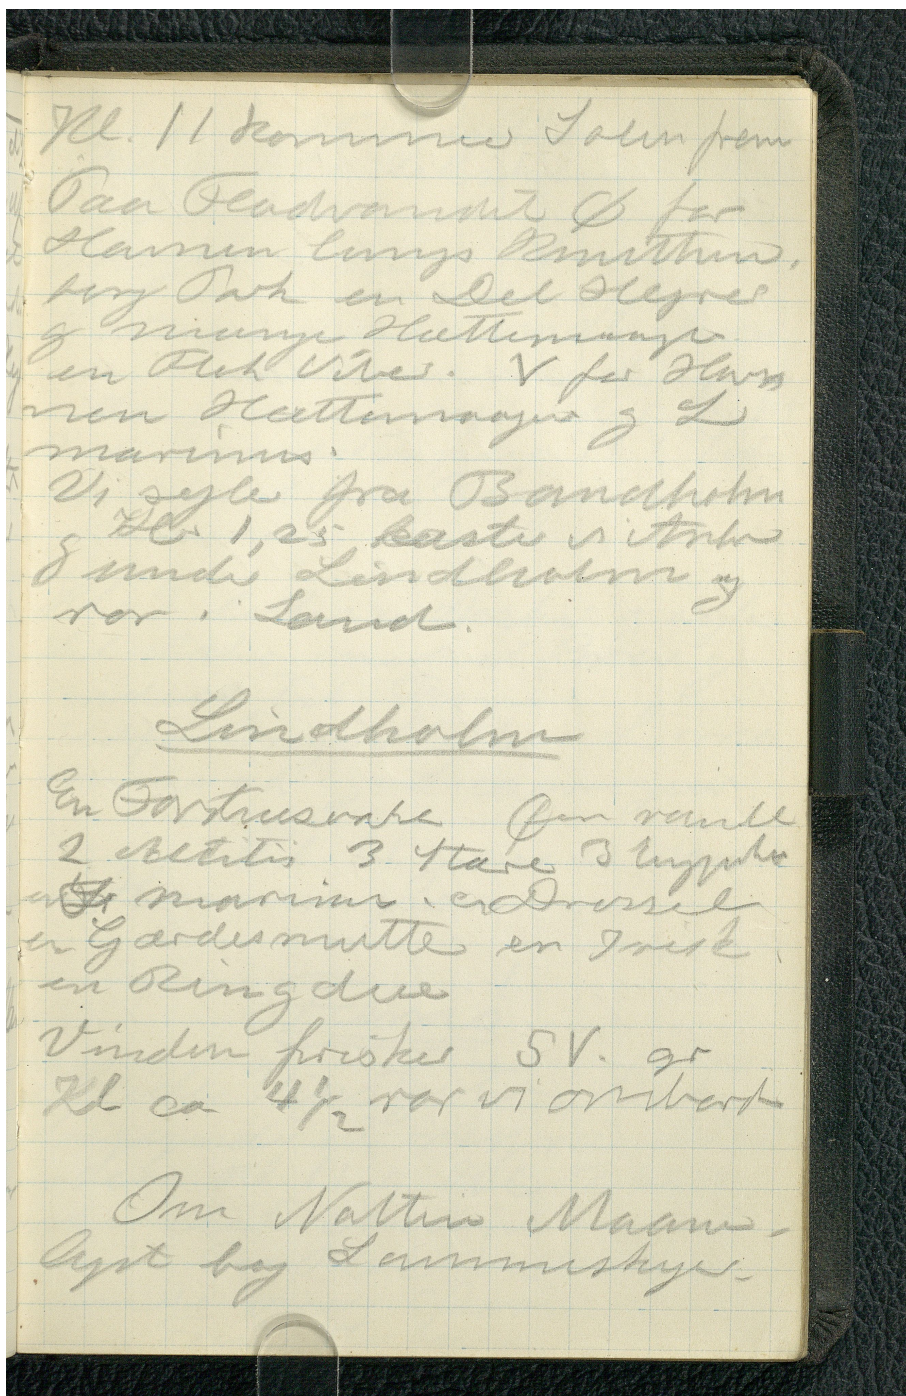 Kl. 11 kommer Solen frem
Paa Fladvandet Ø for
Havnen langs Knuthen-
borg Park en Del Hejrer
og mange Hættemaager
en Flok Viber. V for Hav
nen Hættemaager og L
marinus.
Vi sejler fra Bandholm
Kl 1,25 kaster vi Anker
under Lindholm og
ror i Land.
Lindholm
En Øen rundt
2 3 Stære 3
marinus. en Drossel
en Gærdesmutte en Irisk
en Ringdue
Vinden frisker SV. 
Kl ca 4½ ror vi ombord
Om Natten Maane-
lyst bag Lammeskyer.